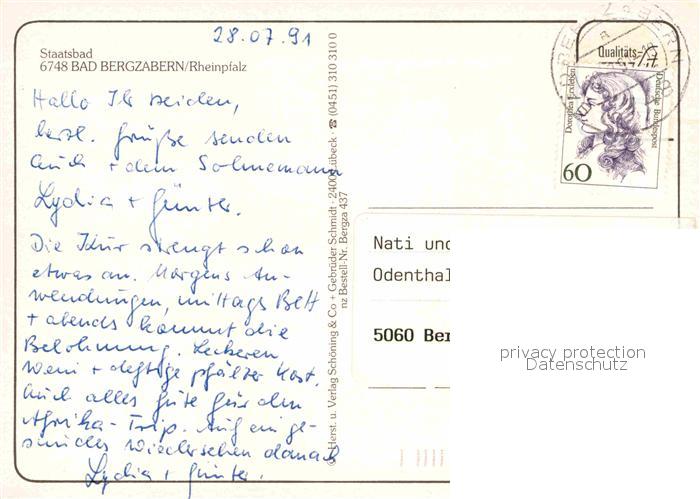 28.07.91
Staatsbad
6748 BAD BERGZABERN/Rheinpfalz
Hallo Ihr beiden,
herzl. Grüße senden
Euch + dem Sohnemann
Lydia + Günter.
Die Kur strengt schon
etwas an. Morgens An-
wendungen, mittags Bett
+ abends kommt die
Belohnung. Leckeren
Wein + deftige pfälzer Kost.
Euch alles gute für den
Afrika-Trip. Auf ein ge-
sundes Wiedersehen danach
Lydia + Günter.
© Herst. u. Verlag Schöning & Co + Gebrüder Schmidt · 2400 Lübeck · ☎ (04 51) 310 310 0
nz Bestell-Nr. Bergza 437
Qualitäts-
Dorothea Erxleben
Deutsche Bundespost
60
Nati und
Odenthal
5060 Ber
privacy protection
Datenschutz